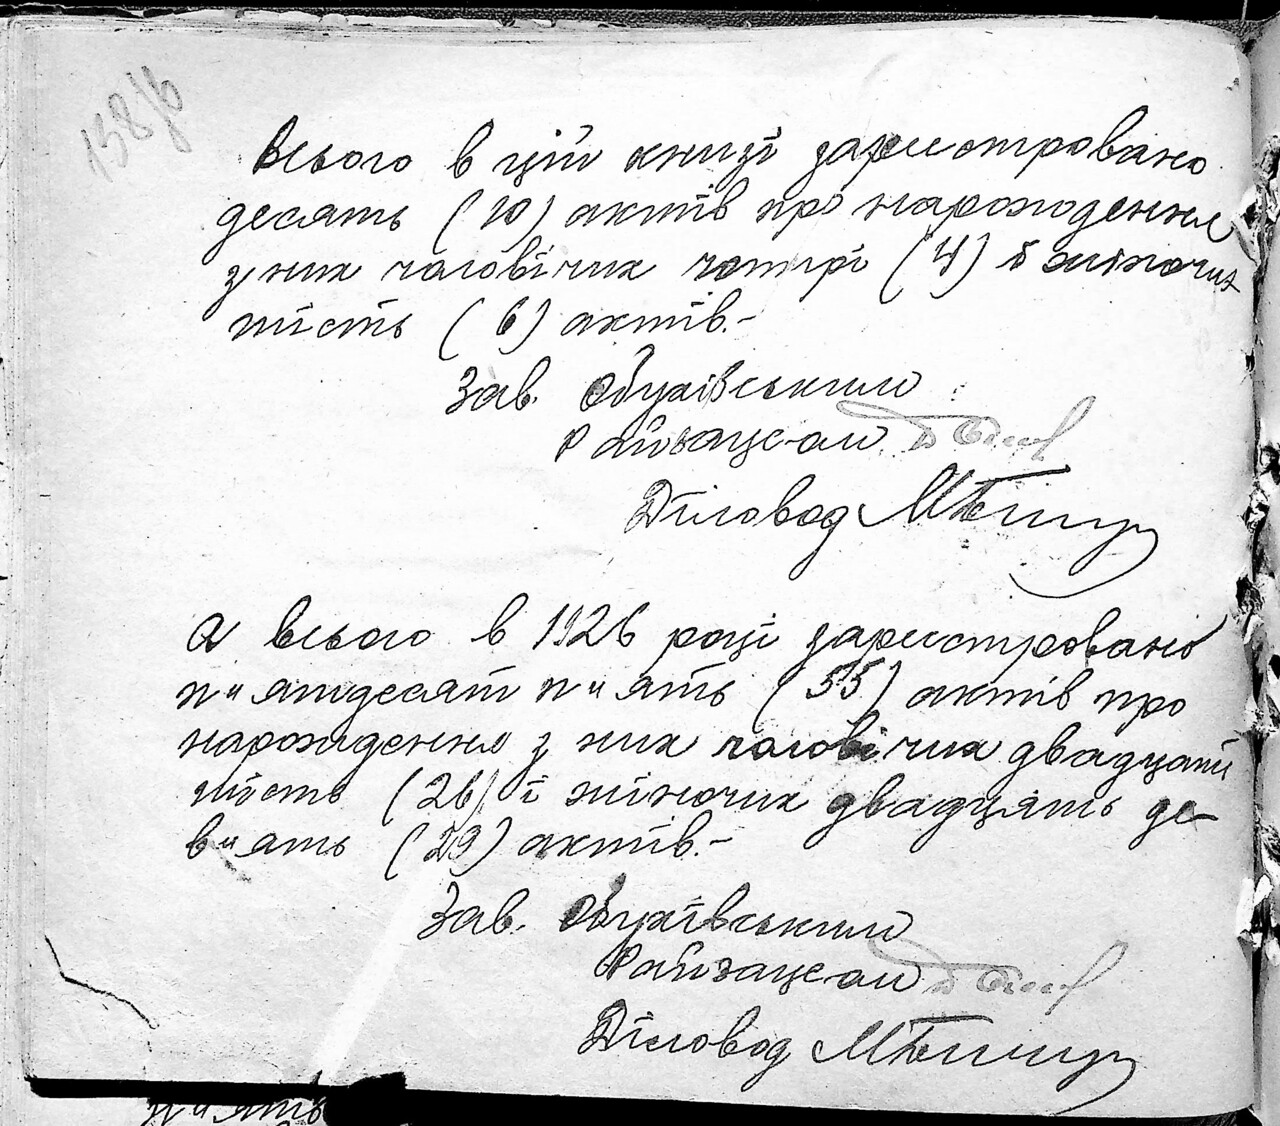 158/6
Всього в цій книзі зареєстровано
десять (10) актів про народження
з них чоловічих чотирі (4) і жіночих
шість (6) актів.-
Зав. Обухівським
Райзагс-ом
Діловод
А всього в 1926 році зареєстровано
п"ятдесят п"ять (55) актів про
народження з них чоловічих двадцать
шість (26) і жіночих двадцять де-
в"ять (29) актів.-
Зав. Обухівським
Райзагс-ом
Діловод
п"ять